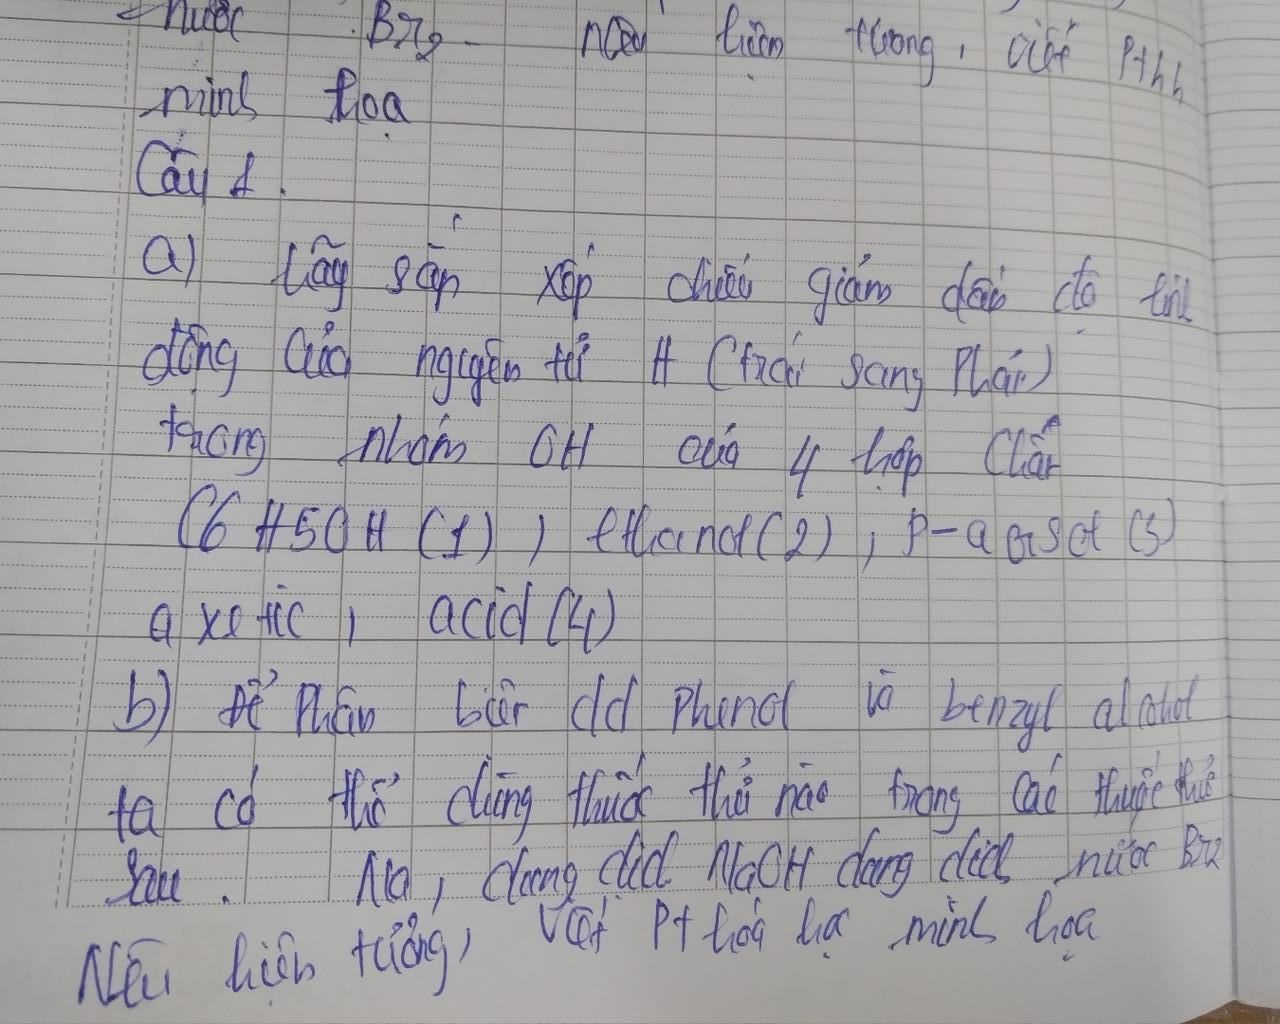 nước Br2. nêu hiện tượng, viết Pthh
minh họa
Câu 1.
a) Hãy sắp xếp chiều giảm dần độ linh
động của nguyên tử H (trái sang Phải)
trong nhóm OH của 4 hợp chất
C6H5OH (1), ethanol (2), P-cresol (3)
axetic, acid (4)
b) Để Phân biệt dd Phenol và benzyl alcohol
ta có thể dùng thuốc thử nào trong các thuốc thử
sau. Na, dung dịch NaOH dung dịch nước Br2
Nêu hiện tượng, Viết Pt hoá học minh họa